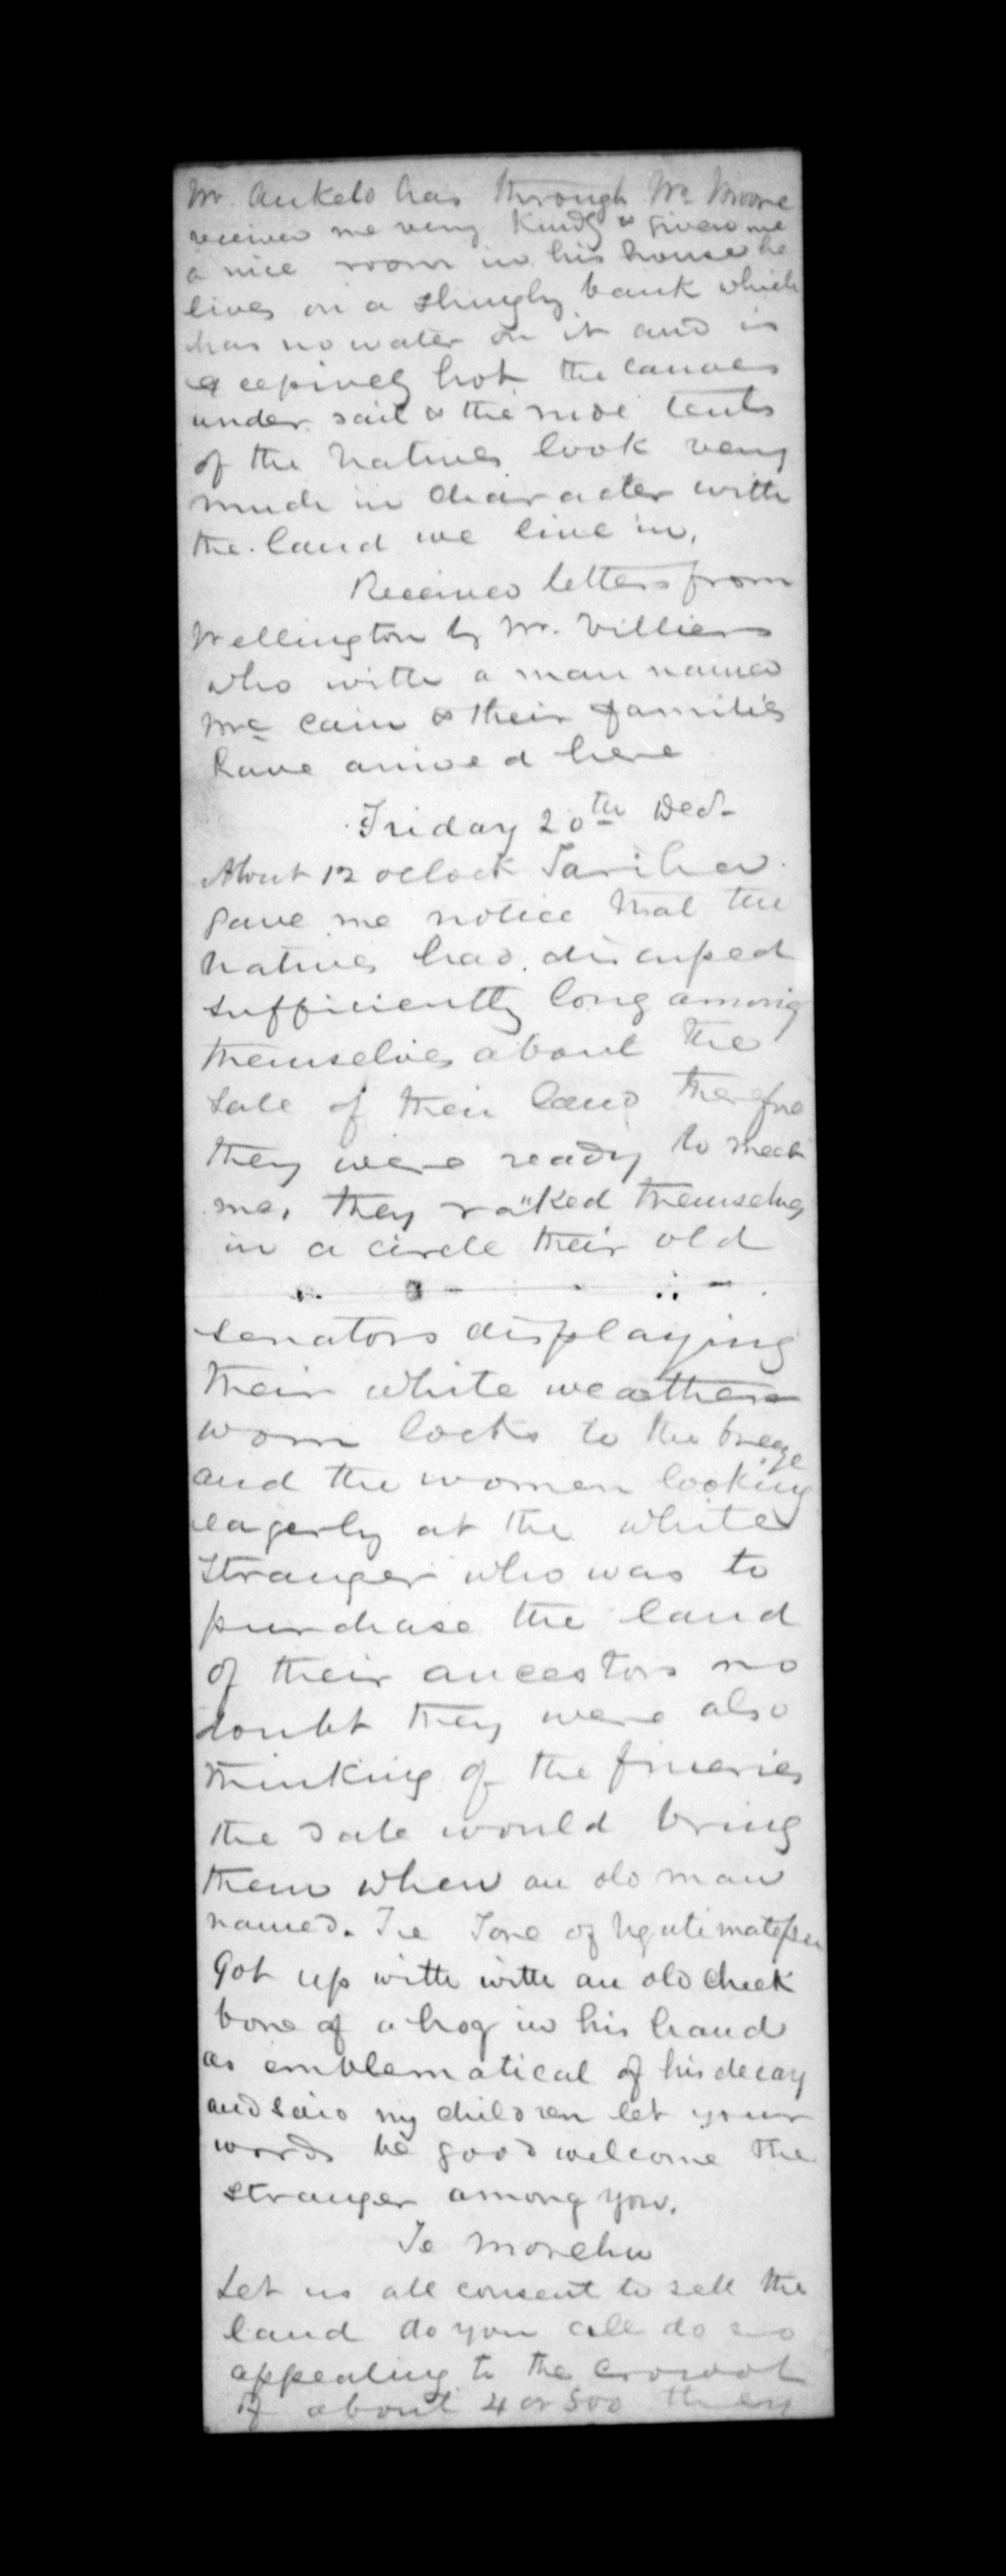 Mr. Ankelo has through Mr. Moore
received me very kindly & given me
a nice room in his house he
lives on a shingly bank which
has no water on it and is
excessively hot the canoes
under sail & the rude tents
of the Natives look very
much in character with
the land we live in.
Received letters from
Wellington by Mr. Villiers
who with a man named
Mc Cain & their families
have arrived here
Friday 20th Dec.
About 12 oclock Tarihea
gave me notice that the
natives had discussed
sufficiently long among
themselves about the
sale of their land therefore
they were ready to meet
me, they raked themselves
in a circle their old
senators displaying
their white weather
worn locks to the breeze
and the women looking
eagerly at the white
stranger who was to
purchase the land
of their ancestors no
doubt they were also
thinking of the fineries
the sale would bring
them when an old man
named. Te Tone of Ngatimatepu
Got up with with an old cheek
bone of a hog in his hand
as emblematical of his decay
and said my children let your
words be good welcome the
stranger among you.
Te Morehu
Let us all consent to sell the
land do you all do so
appealing to the crowd
of about 4 or 500 they